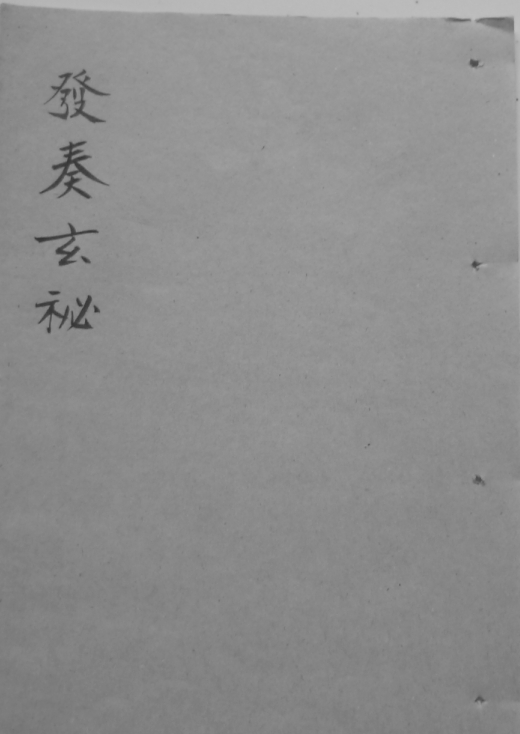 發奏玄祕